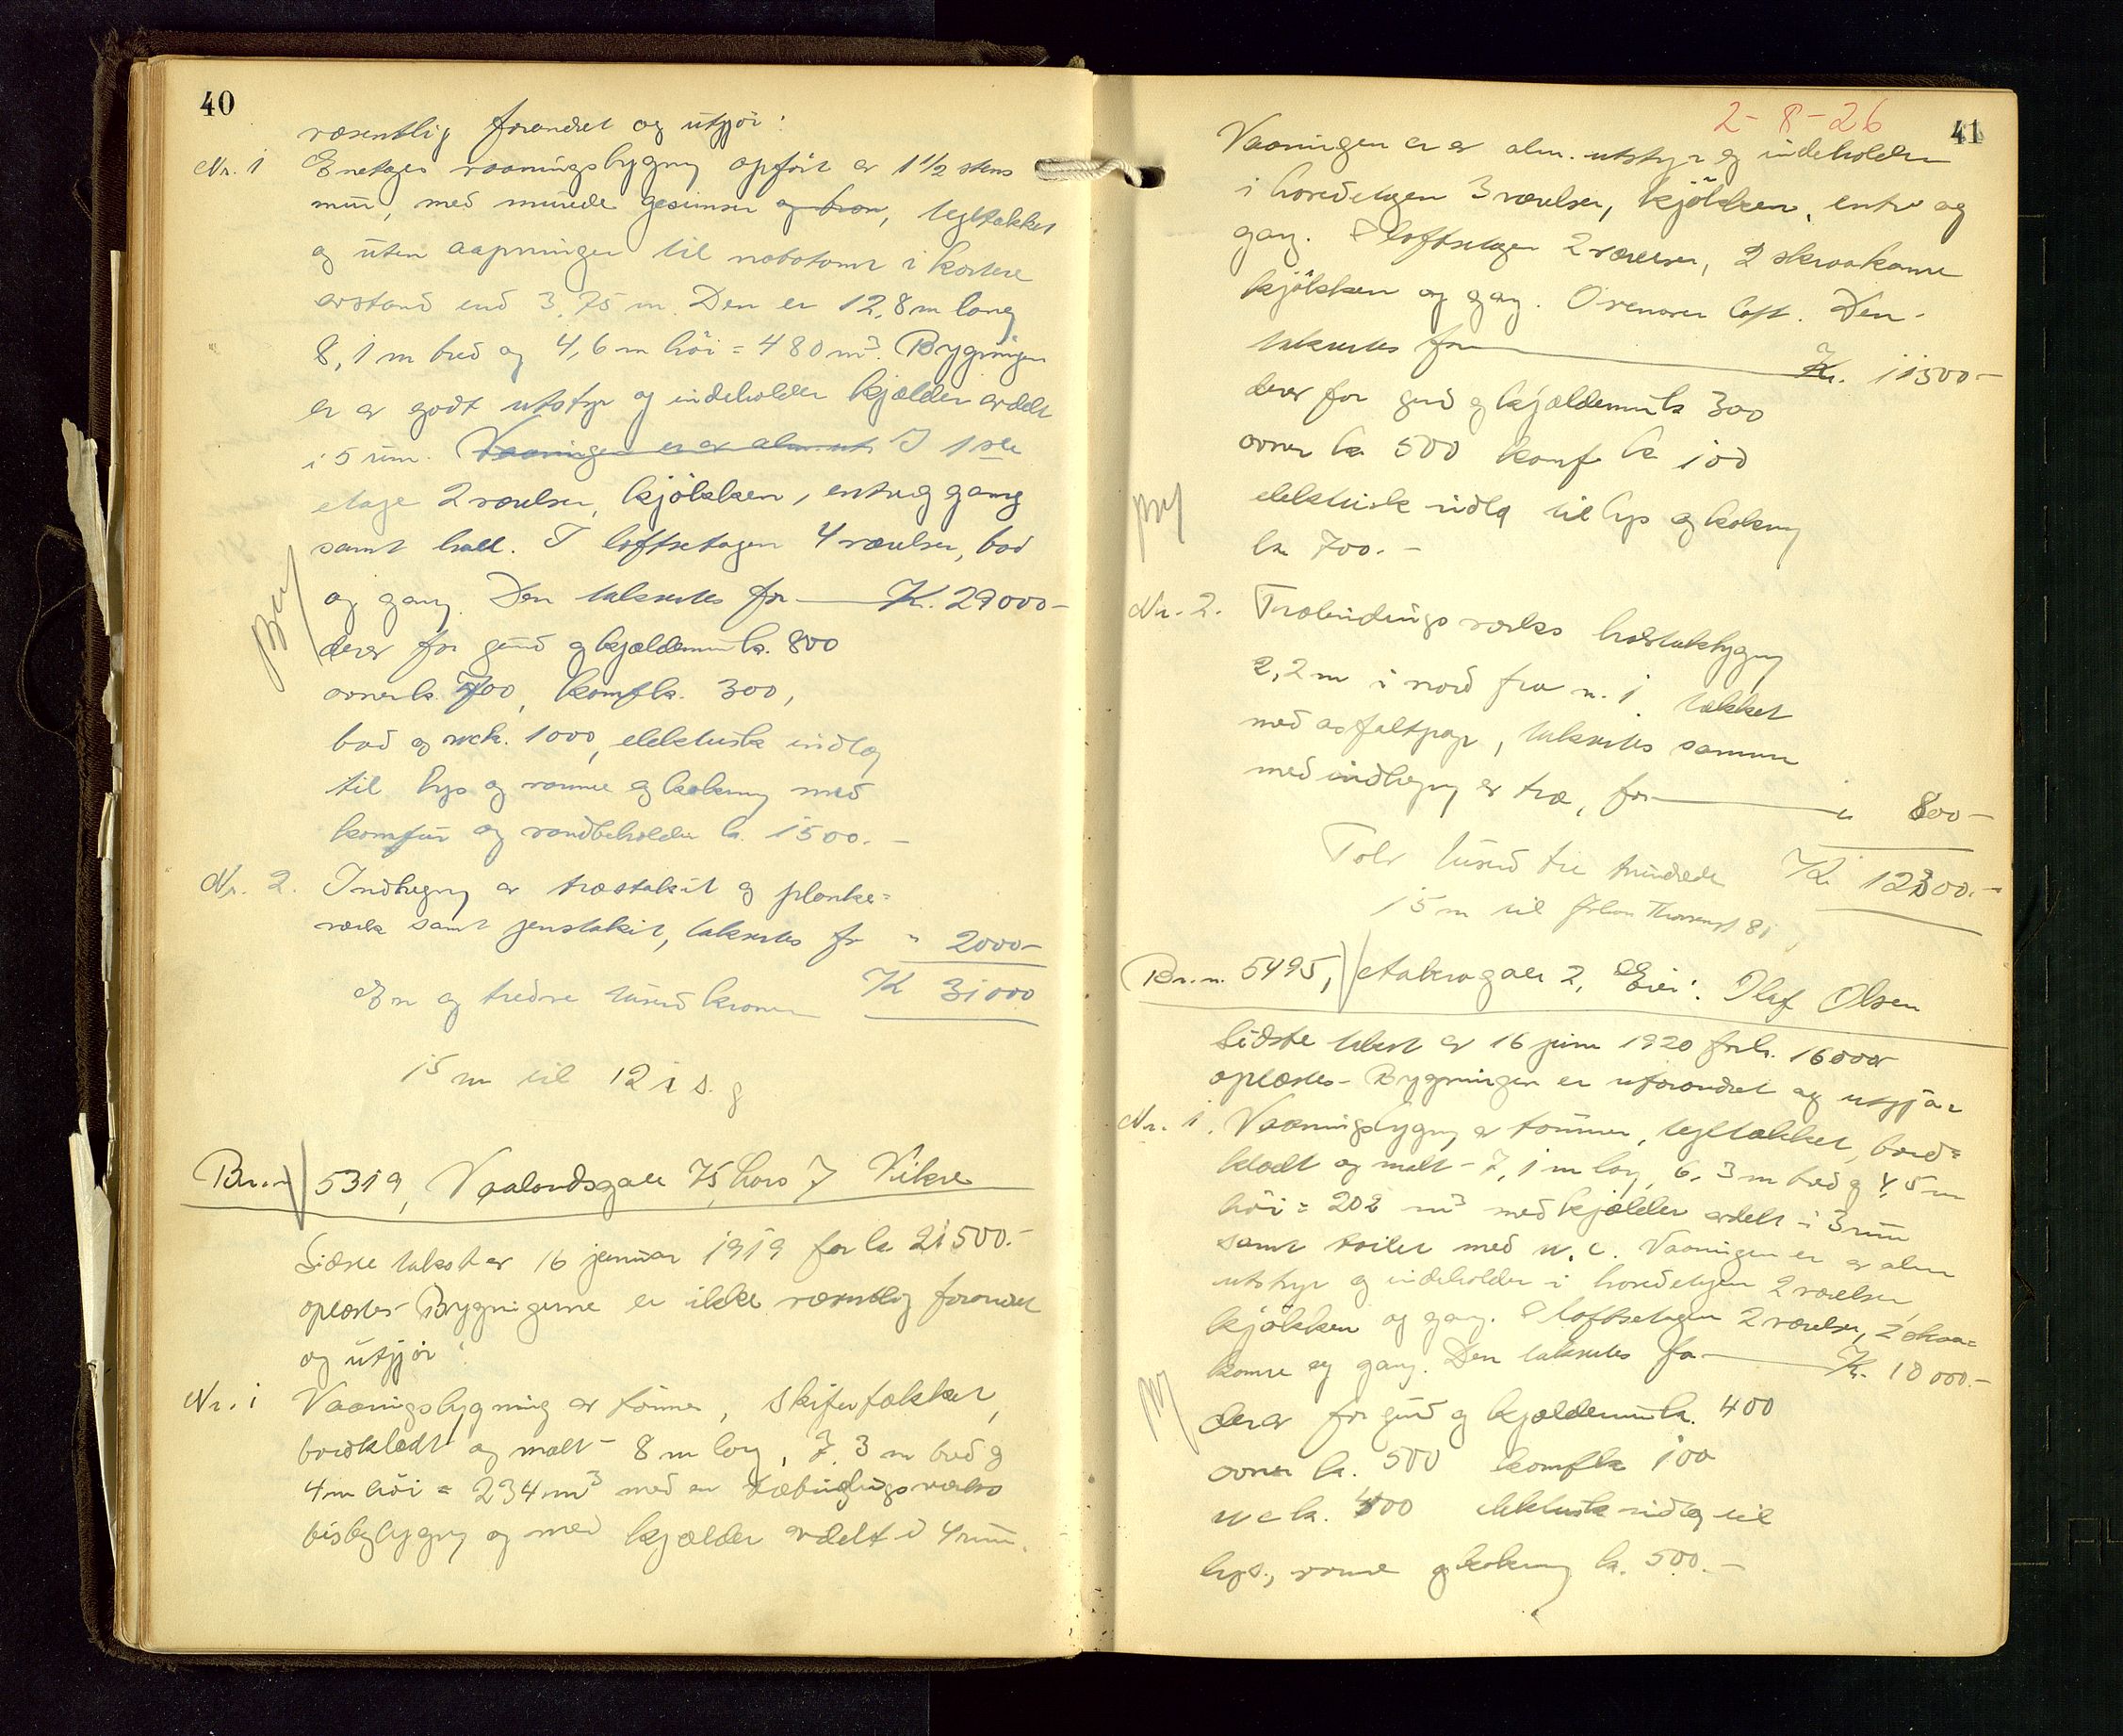 40
væsentlig forandret og utgjör:
Nr. 1 Enetages vaaningsbygning opfört av 1 1/2 stens
mur, med murede gesimser og bran, tegltækket
og uten aapninger til nabotomt i kortere
avstand end 3,75 m. Den er 12,8 m lang
8,1 m bred og 4,6 m höi = 480 m3. Bygningen
er av godt utstyr og indeholder kjælder avdelt
i 5 rum. Vaaningen er av alm. ut I 1ste
etage 2 værelser, kjökken, entre og gang
samt hall. I loftsetagen 4 værelser, bad
og gang. Den takseres for Kr. 29000-
derav for grund og kjældermur kr. 800
ovner kr. 700, komf kr. 300,
bad og wck. 1000, elektrisk indlæg
til lys og varme og kokning med
komfur og vandbeholder kr. 1500.-
Nr. 2. Indhegning av træstakit og planke=
værk samt jernstakit, takseres for " 2000-
En og tredve tusind kroner K 31000
15 m til 12 i s. g
Br.nr 5319, Vaalandsgate 75 Lars J Vikre
Sidste takst av 16 januar 1919 for kr 21500.-
oplæstes- Bygningerne er ikke væsentlig forandret
og utgjör:
Nr. 1 Vaaningsbygning av tömmer, skifertækket,
bordklædt og malt - 8 m lang, 7,3 m bred og
4 m höi = 234 m3 med en træbindingsverks
bislagbygning og med kjælder avdelt i 4 rum.
2-8-26
41
Vaaningen er av alm. utstyr og indeholder
i hovedetagen 3 værelser, kjökken, entre og
gang. I loftsetagen 2 værelser, 2 skraakamre
kjökken og gang. Ovenover loft. Den
takseres for Kr. 11500-
derav for grund og kjældermur kr 300
ovner kr 500 komf kr 100
elektrisk indlæg til lys og kokning
kr 700.-
Nr. 2. Træbindingsverks halvtaksbygning
2,2 m i nord fra nr. 1 tækket
med asfaltpap, takseres sammen
med indhegning av træ, for " 800-
Tolv tusind tre hundrede Kr. 12300.-
15 m til Johan Thorsensgt 81
Br.nr. 5495, Aabragate 2, Eier: Olaf Olsen
Sidste takst av 16 juni 1920 for kr. 16000
oplæstes- Bygningen er uforandret og utgjör
Nr. 1. Vaaningsbygning av tömmer, tegltækket, bord=
klædt og malt - 7,1 m lang, 6,3 m bred og 4,5 m
höi = 202 m3 med kjælder avdelt i 3 rum
samt toilet med w.c. Vaaningen er av alm
utstyr og indeholder i hovedetagen 2 værelser,
kjökken og gang. I loftsetagen 2 værelser, 2 skraa=
kamre og gang. Den takseres for Kr. 10000.-
derav for grund og kjældermur kr. 400
ovner kr. 500 komf kr 100
wc kr. 400 elektrisk indlæg til
lys, varme og kokning kr. 500.-